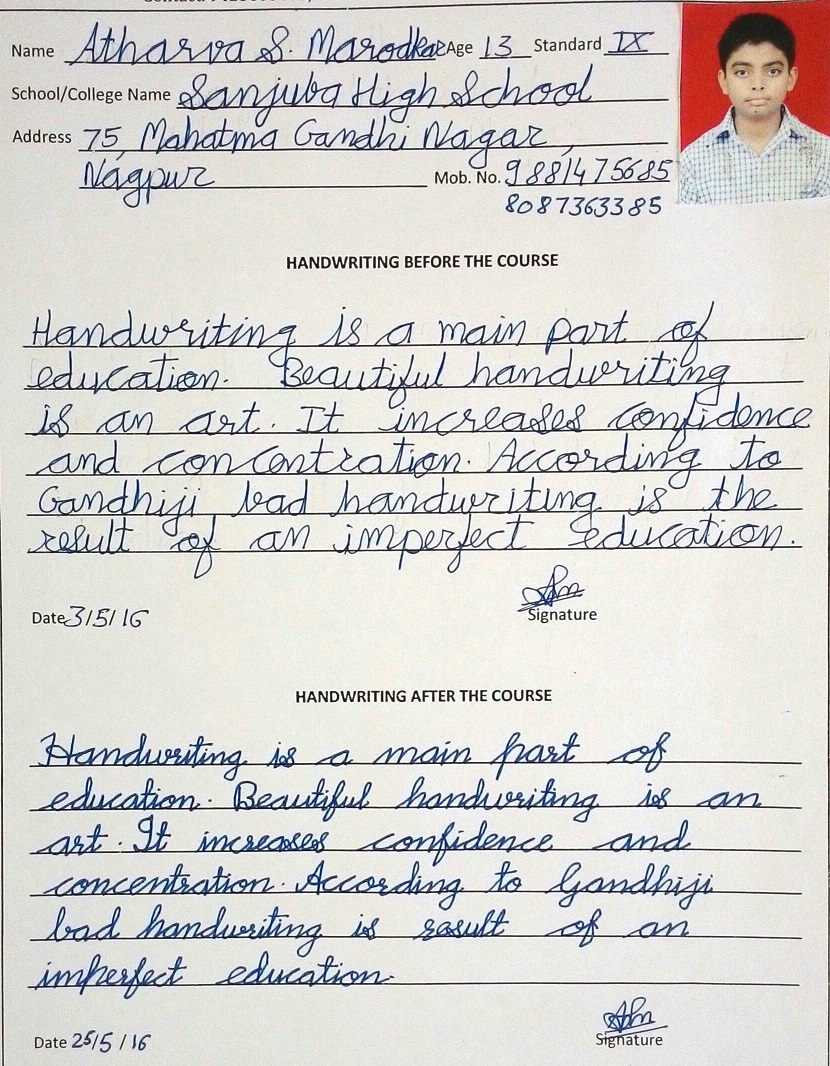 Name Atharva S. Marodkar Age 13 Standard IX
School/College Name Sanjuba High School
Address 75, Mahatma Gandhi Nagar,
Nagpur Mob. No. 9881475685
8087363385
HANDWRITING BEFORE THE COURSE
Handwriting is a main part of
education. Beautiful handwriting
is an art. It increases confidence
and concontration. According to
Gandhiji bad handwriting is the
result of an imperfect education.
Date 3/5/16
Signature
HANDWRITING AFTER THE COURSE
Handwriting is a main part of
education. Beautiful handwriting is an
art. It increases confidence and
concentration. According to Gandhiji
bad handwriting is result of an
imperfect education.
Date 25/5/16
Signature